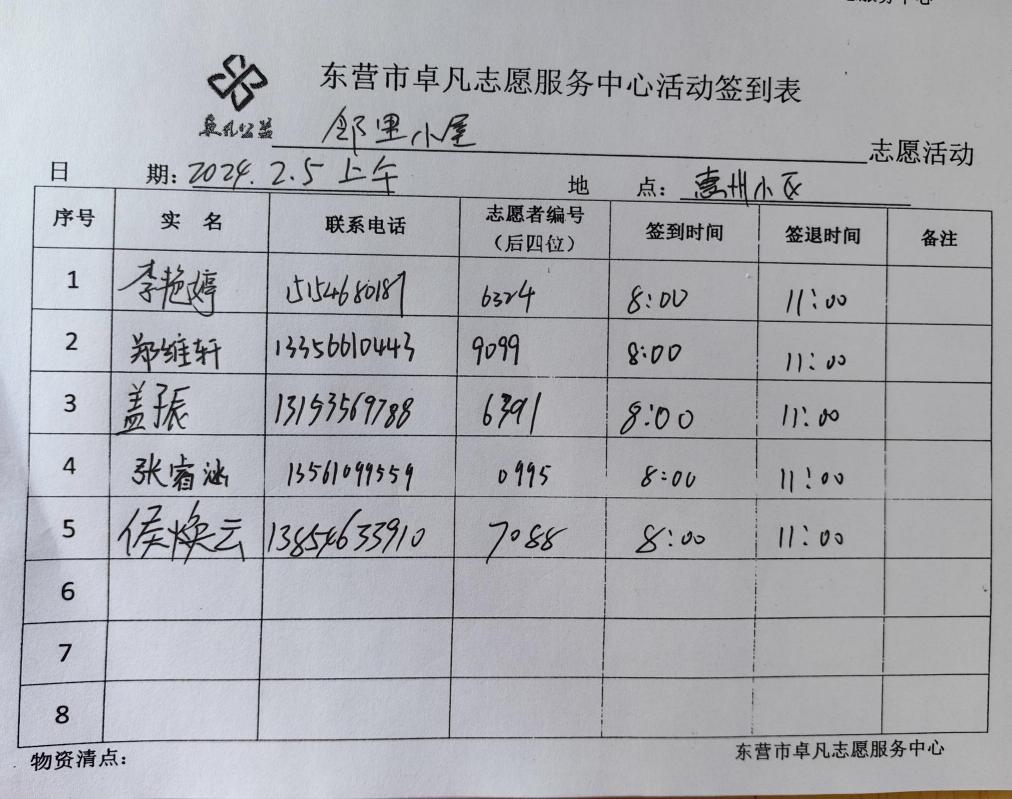 东营市卓凡志愿服务中心活动签到表
卓凡公益
邻里小屋 志愿活动
日 期：2024.2.5 上午 地 点：惠州小区
序号 实 名 联系电话 志愿者编号（后四位） 签到时间 签退时间 备注
1 李艳婷 15154680187 6324 8:00 11:00
2 郑维轩 13356610443 9099 8:00 11:00
3 盖子辰 13153569788 6391 8:00 11:00
4 张睿涵 13561099559 0995 8:00 11:00
5 侯焕云 13854633910 7088 8:00 11:00
6
7
8
物资清点： 东营市卓凡志愿服务中心